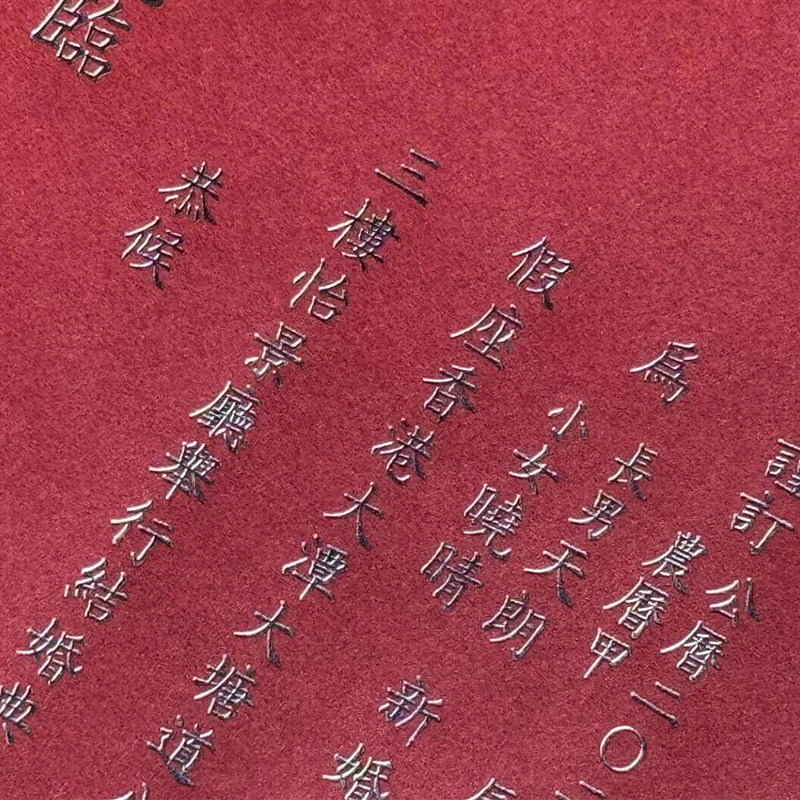 謹訂
公曆二〇二
農曆甲
為
長男天朗
小女曉晴
新婚
假座香港大潭大塘道
三樓怡景廳舉行結婚典
恭候
臨